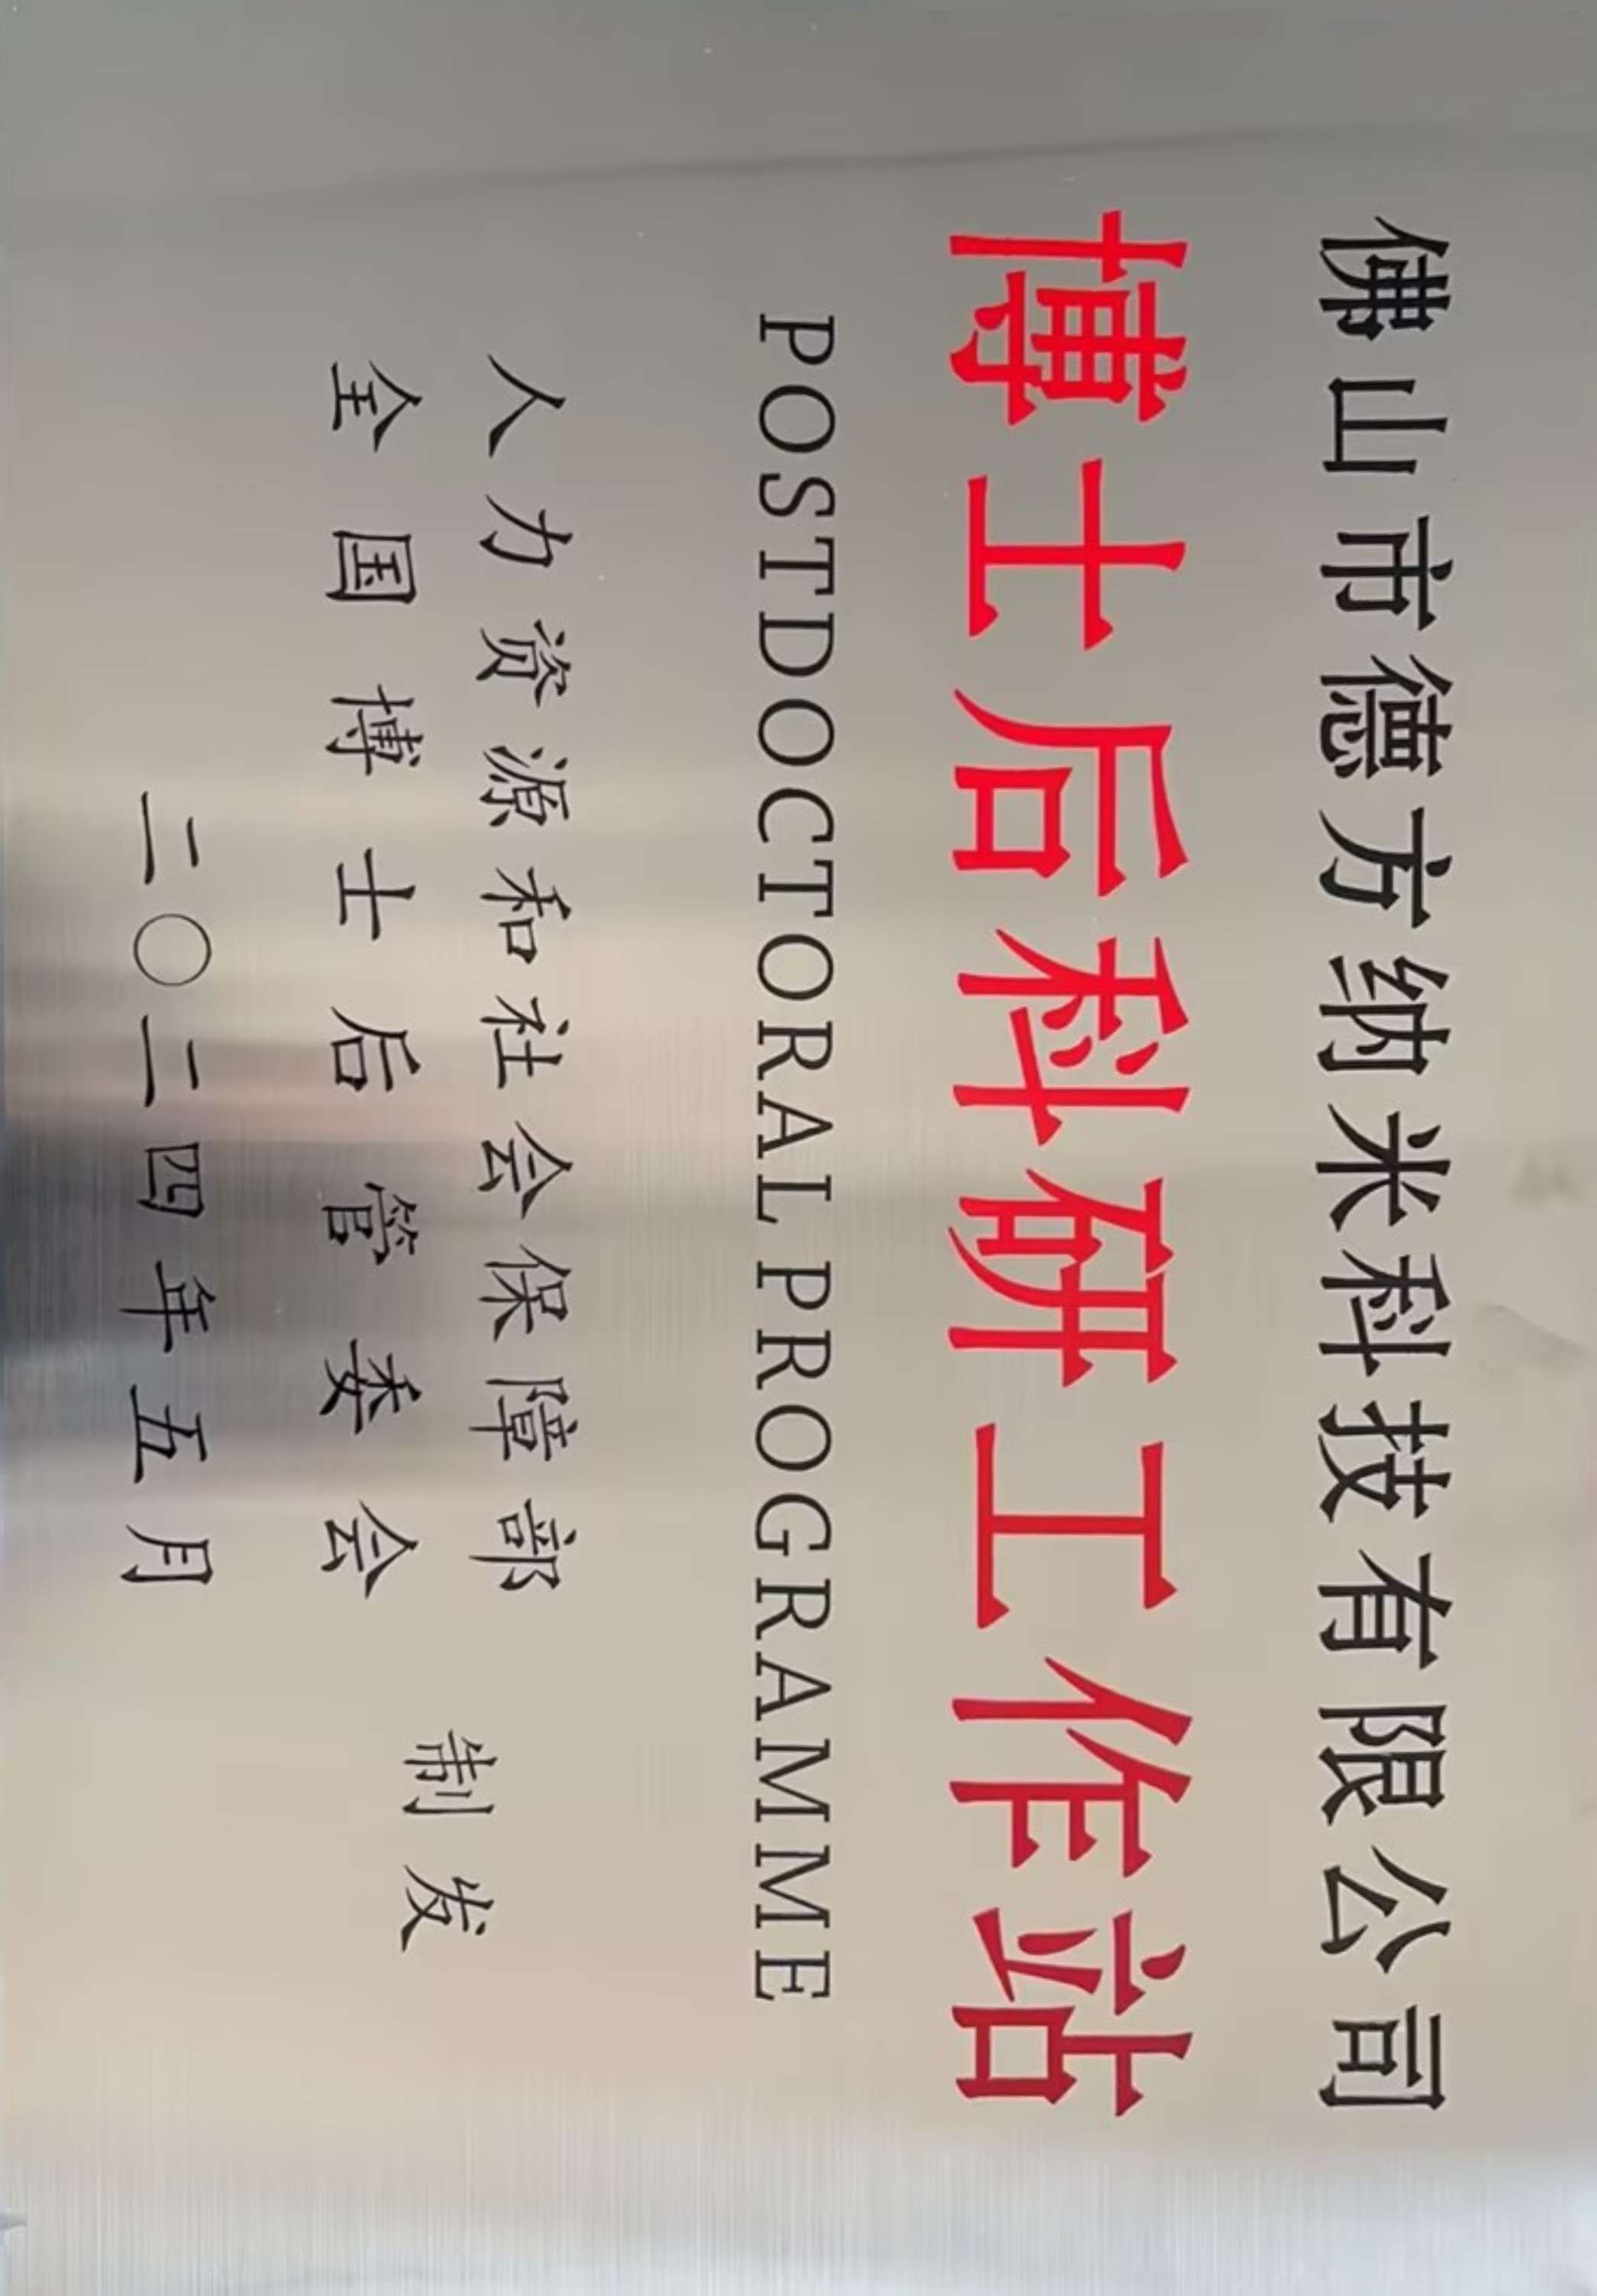 佛山市德方纳米科技有限公司
博士后科研工作站
POSTDOCTORAL PROGRAMME
人力资源和社会保障部
全国博士后管委会
制发
二〇二四年五月